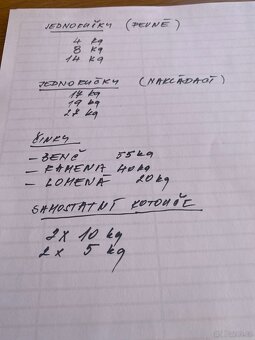 JEDNORUČKY (PEVNÉ)
4 kg
8 kg
14 kg
JEDNORUČKY (NAKLÁDACÍ)
14 kg
19 kg
28 kg
ČINKY
- BENČ 55 kg
- RAMENA 40 kg
- LOMENÁ 20 kg
SAMOSTATNÍ KOTOUČE
2x 10 kg
2x 5 kg